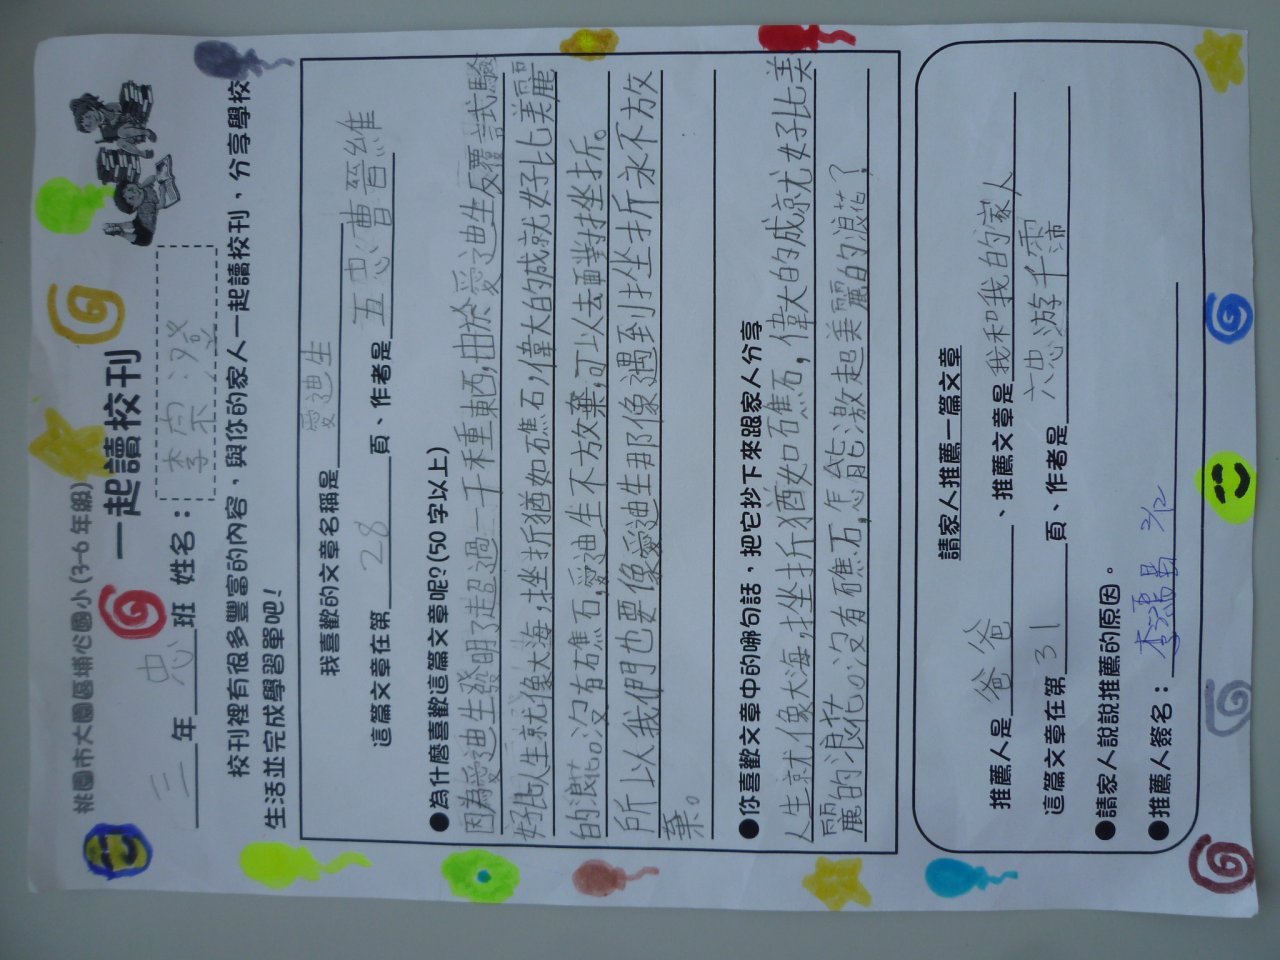 桃園市大園區埔心國小(3-6年級)
一起讀校刊
三年忠班 姓名：李宗澄
校刊裡有很多豐富的內容，與你的家人一起讀校刊、分享學校
生活並完成學習單吧！
我喜歡的文章名稱是愛迪生
這篇文章在第28頁、作者是五忠曹晉維
●為什麼喜歡這篇文章呢？(50字以上)
因為愛迪生發明了超過一千種東西，由於愛迪生反覆試驗
好比人生就像大海，挫折猶如礁石，偉大的成就好比美麗
的浪花。沒有礁石，愛迪生不放棄，可以去面對挫折。
所以我們也要像愛迪生那像遇到挫折永不放
棄。
●你喜歡文章中的哪句話，把它抄下來跟家人分享
人生就像大海，挫折猶如石焦石，偉大的成就好比美
麗的浪花。沒有礁石，怎能激起美麗的浪花？
請家人推薦一篇文章
推薦人是爸爸、推薦文章是我和我的家人
這篇文章在第31頁、作者是六忠游千霈
●請家人說說推薦的原因。
●推薦人簽名：